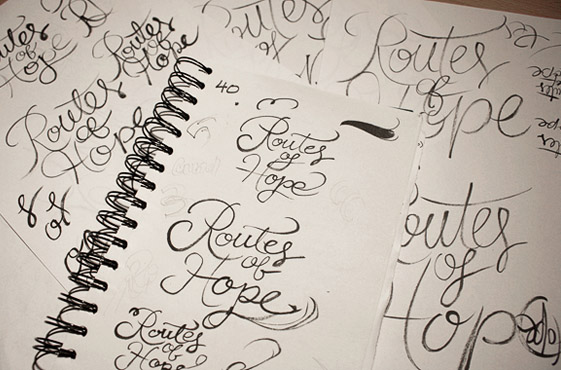 40.
Routes
of
Hope
Routes
of
Hope
Routes
of
Hope
Routes
of
Hope
Routes
of
Hope
Routes
of
Hope
Routes
of
Hope
outes
of
Hope
of